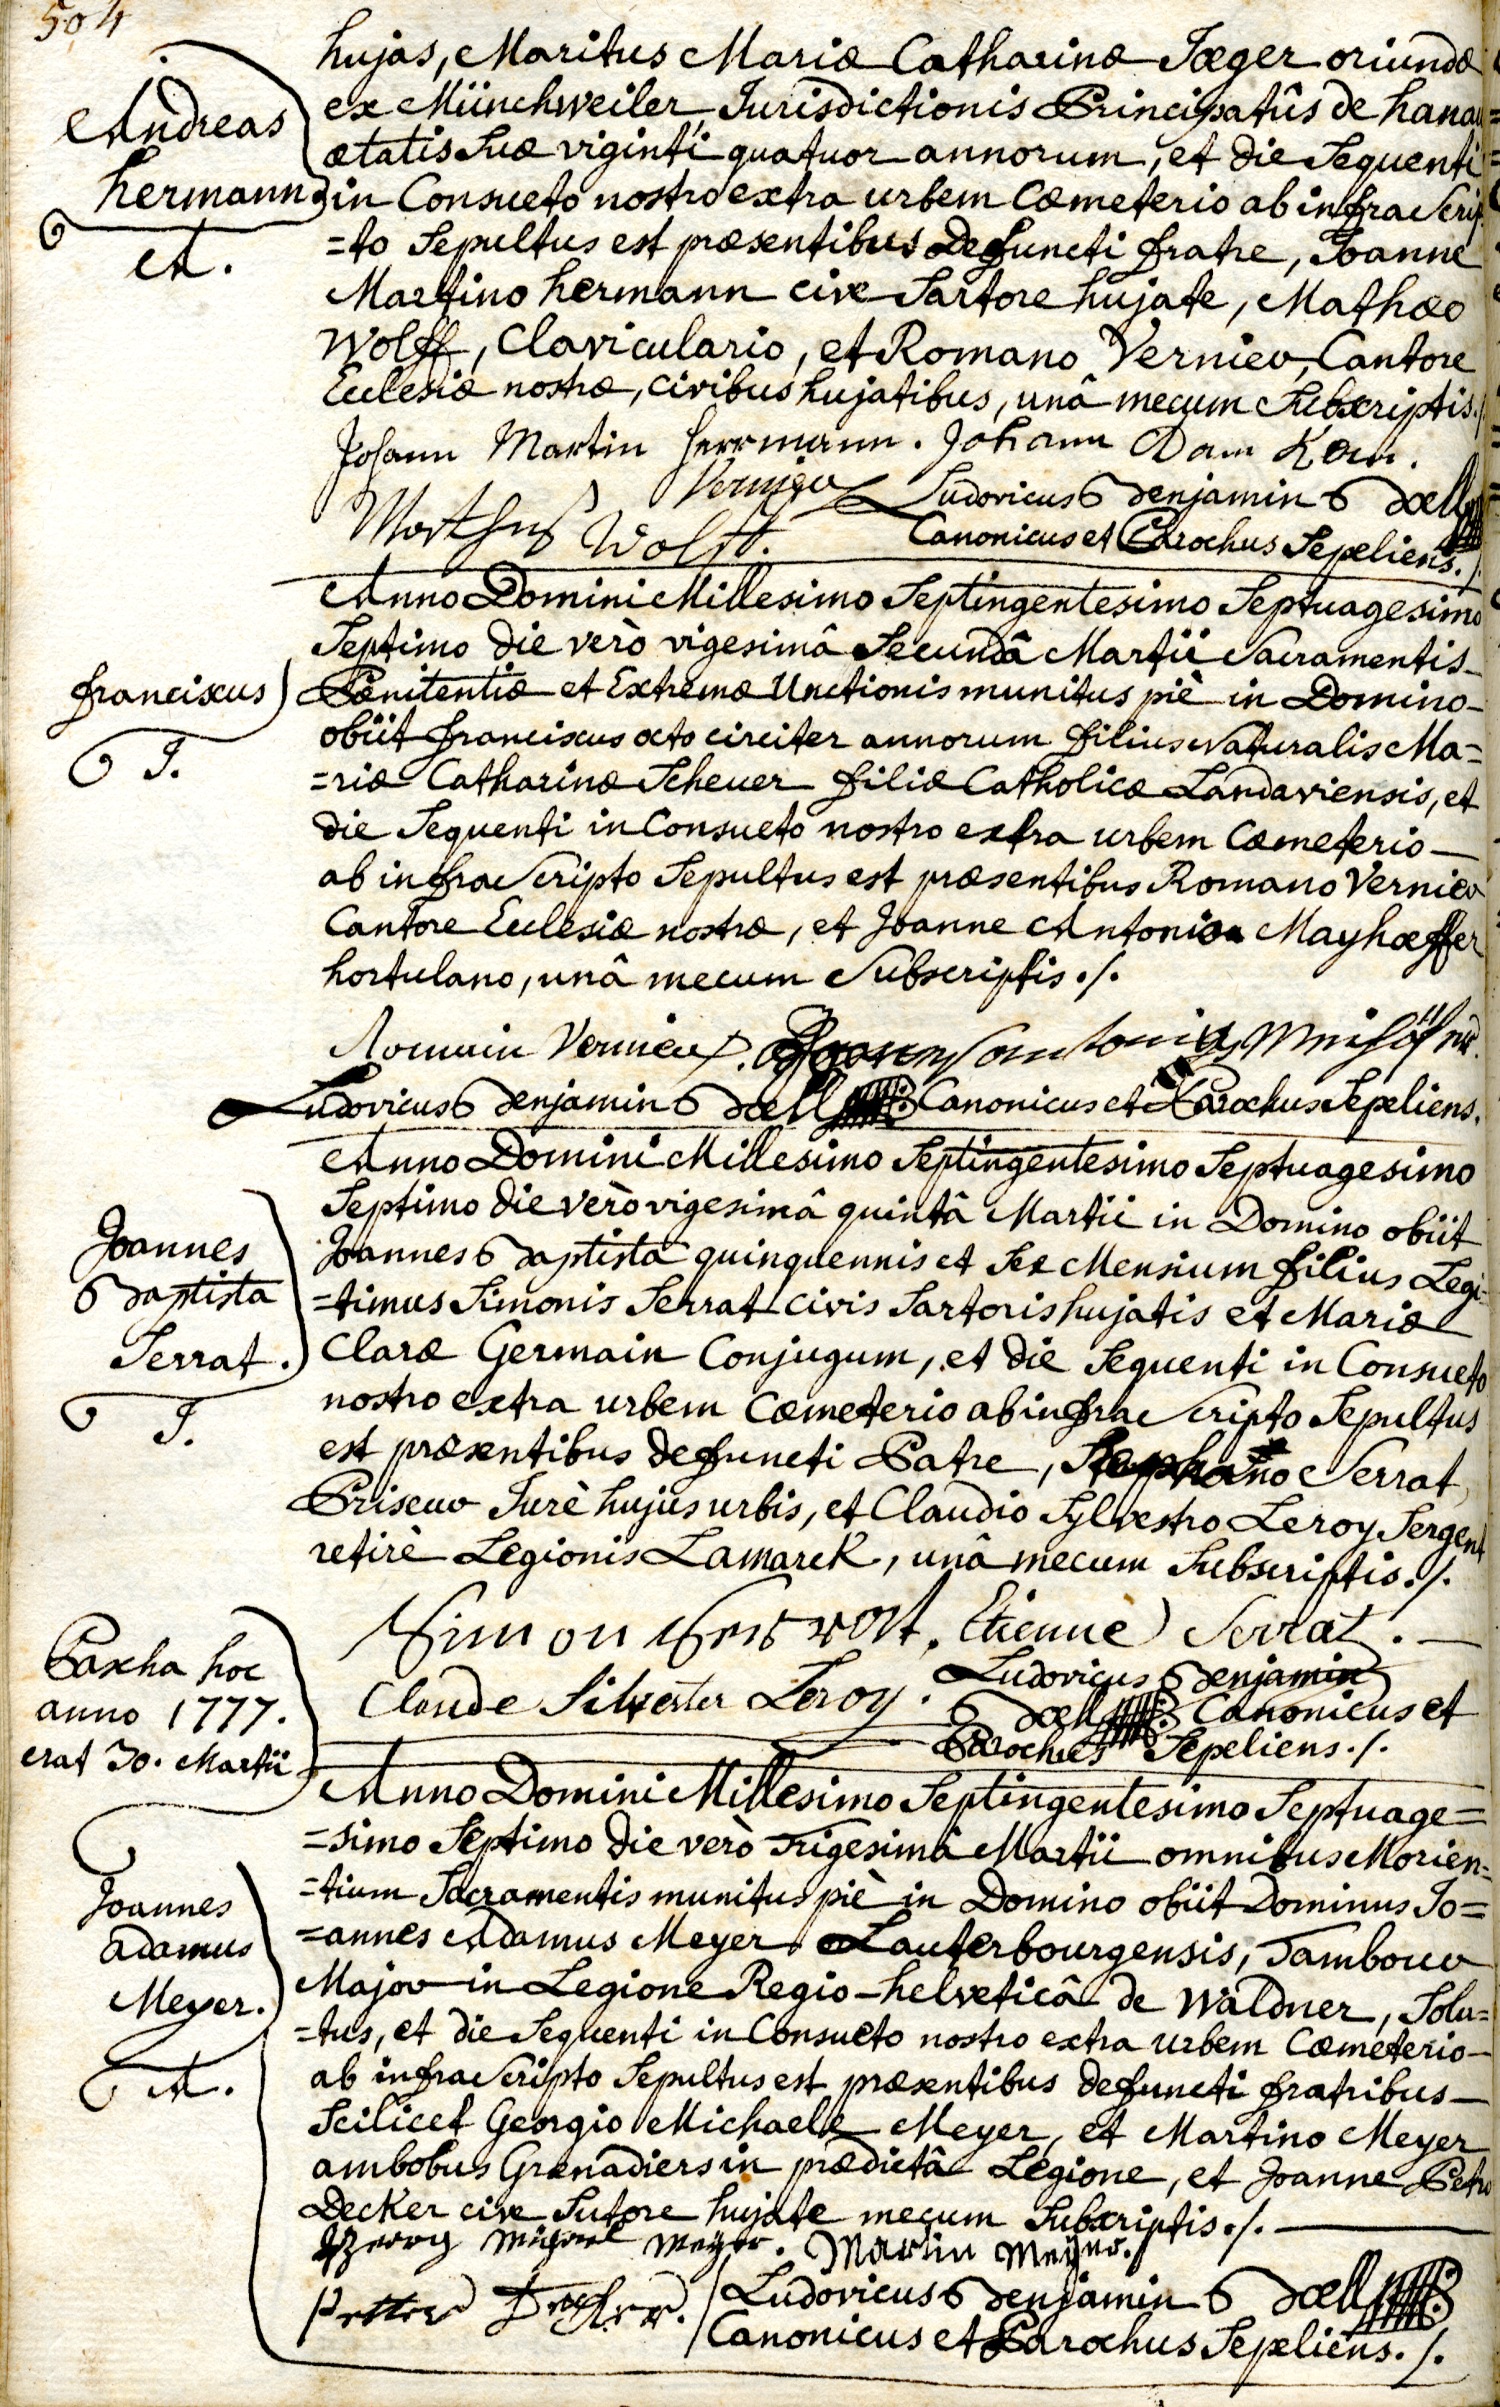 504
hujas, Maritus Mariæ Catharinæ Jæger oriundæ
ex Münchweiler Jurisdictionis Principatûs de hanau=
Andreas
ætatis Suæ viginti quatuor annorum, et die Sequenti
hermann
in Consueto nostro extra urbem Cæmeterio ab infra Scrip=
A.
=to Sepultus est præsentibus Defuncti fratre, Joanne
Martino hermann cive Sartore hujate, Mathæo
Wolff, Claviculario, et Romano Vernieu, Cantore
Ecclesiæ nostræ, civibus hujatibus, unâ mecum Subscriptis./.
Johann Martin Herrmann. Johann Dam
Vernieu Ludovicus Benjamin Boell
Wolff. Canonicus et Parochus Sepeliens./.
Anno Domini Millesimo Septingentesimo Septuagesimo
Septimo die verò vigesimâ Secundâ Martii Sacramentis
franciscus
Pænitentiæ et Extremæ Unctionis munitus piè in Domino
J.
obiit franciscus octo circiter annorum filius Naturalis Ma=
=riæ Catharinæ Scheuer filiæ Catholicæ Landaviensis, et
die Sequenti in Consueto nostro extra urbem Cæmeterio
ab infra Scripto Sepultus est præsentibus Romano Vernieu
Cantore Ecclesiæ nostræ, et Joanne Antonio Mayhæffer
hortulano, unâ mecum Subscriptis./.
Romain Vernieux.
Ludovicus Benjamin Boell Canonicus et Parochus Sepeliens.
Anno Domini Millesimo Septingentesimo Septuagesimo
Septimo die verò vigesimâ quintâ Martii in Domino obiit
Joannes
Joannes Baptista quinquennis et Sex Mensium filius Legi=
Baptista
=timus Simonis Serrat civis Sartoris hujatis et Mariæ
Serrat.
Claræ Germain Conjugum, et die Sequenti in Consueto
J.
nostro extra urbem Cæmeterio ab infra Scripto Sepultus
est præsentibus defuncti Patre, Stephano Serrat
Priseur Juré hujus urbis, et Claudio Sylvestro Leroy Sergent
retiré Legionis Lamarck, unâ mecum Subscriptis./.
Simon Serrat. Etienne Serrat.
Pascha hoc
anno 1777.
erat 30. Martii
Claude Silvester Leroy. Ludovicus Benjamin
Boell Canonicus et
Parochus Sepeliens./.
Anno Domini Millesimo Septingentesimo Septuage=
=simo Septimo die verò Trigesimâ Martii omnibus Morien=
Joannes
=tium Sacramentis munitus piè in Domino obiit Dominus Jo=
adamus
=annes Adamus Meyer Lauterbourgensis, Tambour
Meyer.
Major in Legione Regio-helveticâ de Waldner, Solu=
=tus, et die Sequenti in Consueto nostro extra urbem Cæmeterio
A.
ab infra Scripto Sepultus est præsentibus defuncti fratribus
Scilicet Georgio Michaele Meyer, et Martino Meyer
ambobus Grenadiers in prædictâ Legione, et Joanne Petro
Decker cive Sutore hujate mecum Subscriptis./.
Michael Meyer. Martin Meyer.
Petter Decker. Ludovicus Benjamin Boell
Canonicus et Parochus Sepeliens./.